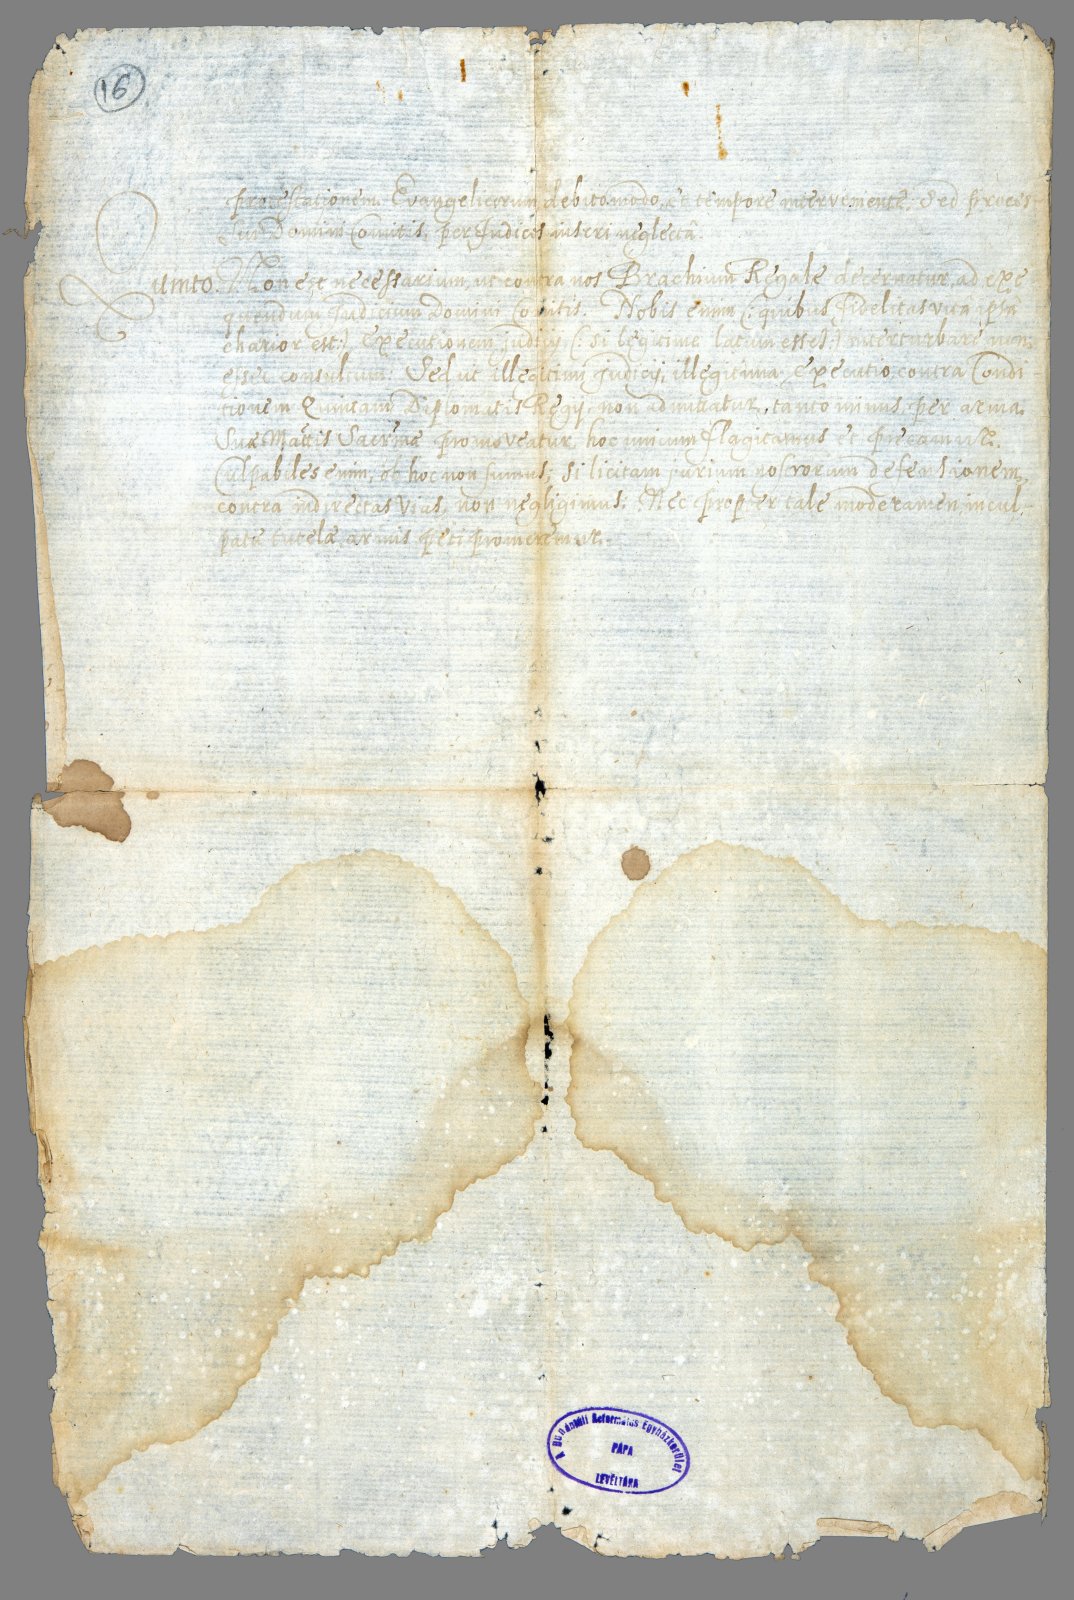 16
protestationem Evangelicorum debito modo, et tempore interveniente; Sed proces-
sui Domini Comitis, per Judices inseri neglectâ.
Quinto. Non est necessarium, ut contra nos Brachium Regale decernatur, ad exe
quendum Judicium Domini Comitis. Nobis enim (: quibus fidelitas vita ipsa
charior est:) Executionem Judicij (: si legitime latum esset:) interturbare non
esset consultum. Sed ut illegitimi Judicij, illegitima Executio, contra Condi-
tionem Quintam Diplomatis Regij, non admittatur, tanto minus, per arma
Suæ Mattis Sacrmæ promoveatur, hoc unicum flagitamus et precamur.
Culpabiles enim, ob hoc non sumus; si licitam jurium nostrorum defensionem,
contra indirectas vias, non negligimus. Nec propter tale moderamen incul-
patæ tutelæ, armis peti promeremur.
A Dunántúli Református Egyházkerület
PÁPA
LEVÉLTÁRA